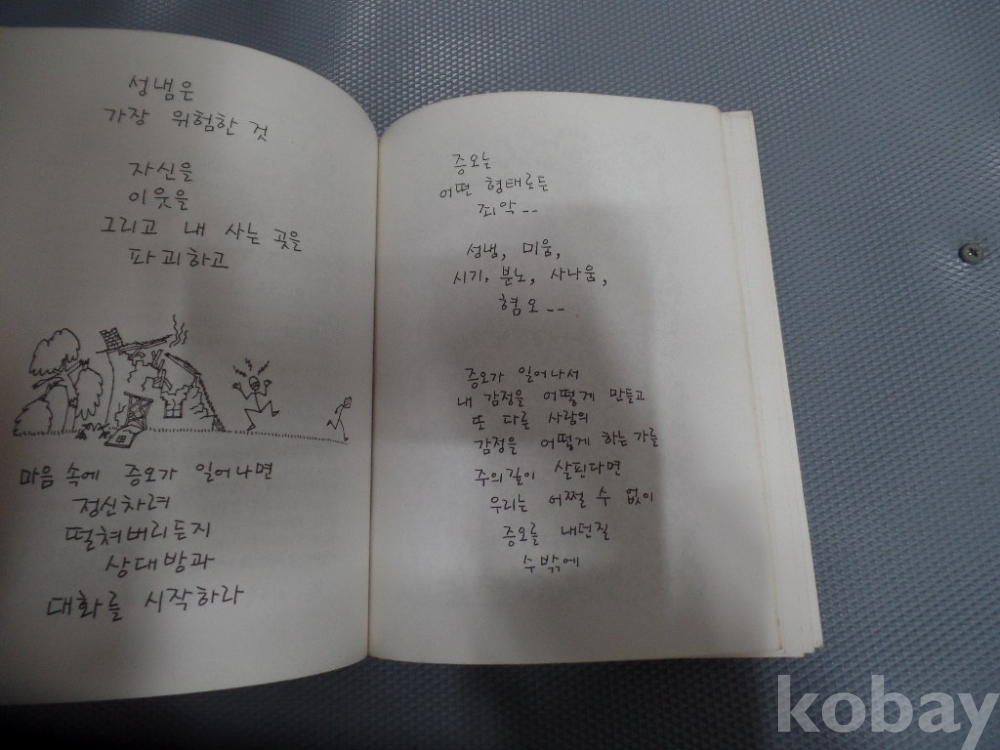 성냄은
가장 위험한 것
자신을
이웃을
그리고 내 사는 곳을
파괴하고
마음 속에 증오가 일어나면
정신차려
떨쳐버리든지
상대방과
대화를 시작하라
증오는
어떤 형태로든
죄악--
성냄, 미움,
시기, 분노, 사나움,
혐오--
증오가 일어나서
내 감정을 어떻게 만들고
또 다른 사람의
감정을 어떻게 하는가를
주의깊이 살핀다면
우리는 어쩔 수 없이
증오를 내던질
수밖에
kobay